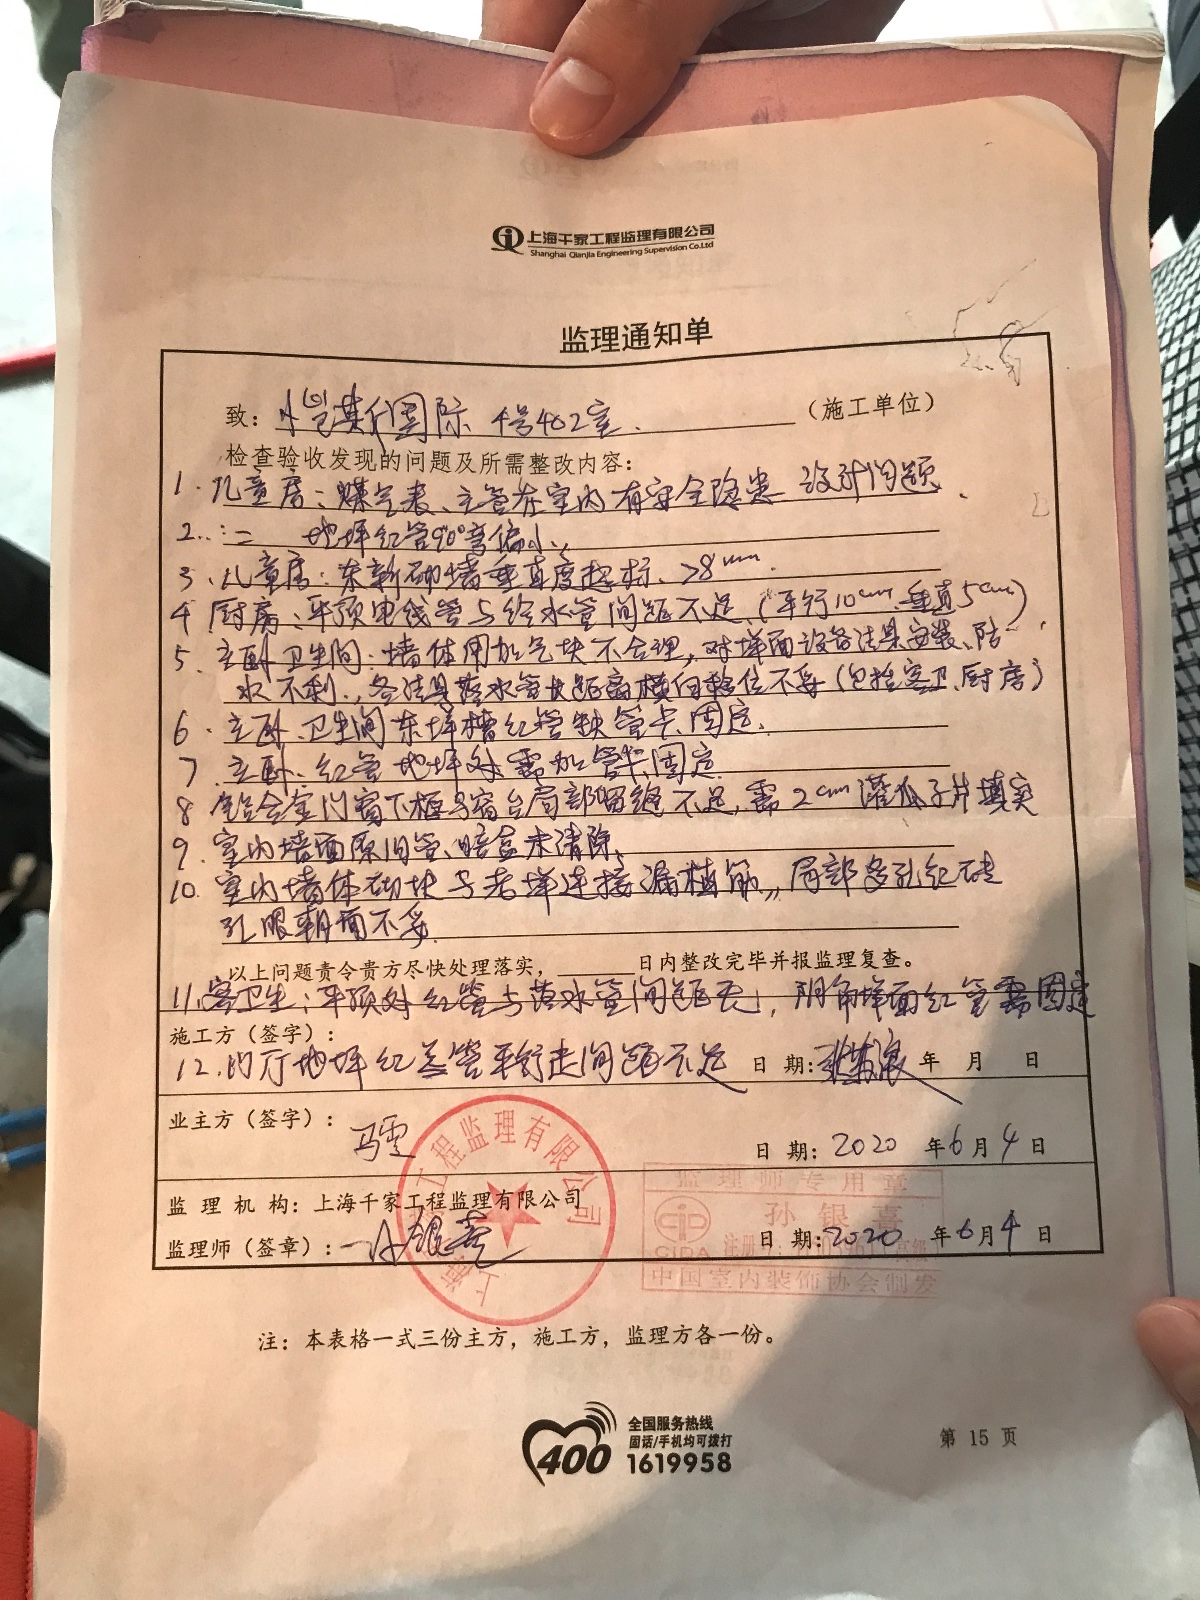 上海千家工程监理有限公司
Shanghai Qianjia Engineering Supervision Co.Ltd
监理通知单
致: 恺英国际 4号402室. (施工单位)
检查验收发现的问题及所需整改内容:
1. 儿童房: 煤气表、主管在室内有安全隐患 设计问题.
2. 地坪红管90°弯偏小.
3. 儿童房: 东新砌墙垂直度超标. >8mm.
4 厨房: 平顶电线管与给水管间距不足, (平行10cm 垂直5cm).
5. 主卧卫生间: 墙体用加气块不合理, 对墙面设备洁具安装、防
水不利., 各洁具落水管长距离横向移位不妥(包括客卫、厨房)
6. 主卧卫生间东墙槽红管缺管卡固定.
7 主卧、红管地坪处需加管卡固定
8 铝合金门窗下框与窗台局部留缝不足, 需2cm灌瓜子片填实
9. 室内墙面原旧管、暗盒未清除.
10. 室内墙体砌块与老墙连接漏植筋,, 局部多孔红砖
孔眼朝面不妥.
以上问题责令贵方尽快处理落实,______日内整改完毕并报监理复查。
11. 客卫生: 平顶处红管与落水管间距无, 阴角墙面红管需固定
施工方(签字):
12. 的厅地坪红蓝管平行走间距不足 日 期: 年 月 日
业主方(签字): 冯雪
日 期: 2020 年6月4日
监 理 机 构: 上海千家工程监理有限公司
监理师(签章): 孙银喜 日 期: 2020 年6月4日
工程监理有限公司
监理师专用章
CIDA 孙银喜
注册
中国室内装饰协会制发
注: 本表格一式三份主方, 施工方, 监理方各一份。
400 全国服务热线
固话/手机均可拨打
1619958
第 15 页